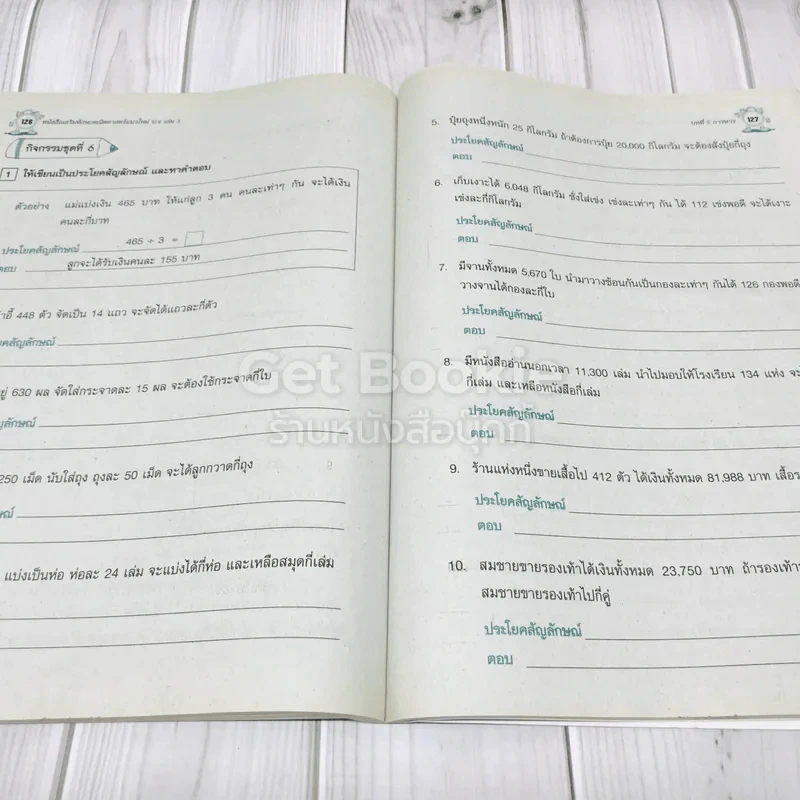 126
กิจกรรมชุดที่ 6
1 ให้เขียนเป็นประโยคสัญลักษณ์ และหาคำตอบ
ตัวอย่าง แม่แบ่งเงิน 465 บาท ให้แก่ลูก 3 คน คนละเท่าๆ กัน จะได้เงิน
คนละกี่บาท
ประโยคสัญลักษณ์ 465 ÷ 3 =
ตอบ ลูกจะได้รับเงินคนละ 155 บาท
448 ตัว จัดเป็น 14 แถว จะจัดได้แถวละกี่ตัว
630 ผล จัดใส่กระจาดละ 15 ผล จะต้องใช้กระจาดกี่ใบ
250 เม็ด นับใส่ถุง ถุงละ 50 เม็ด จะได้ลูกกวาดกี่ถุง
แบ่งเป็นห่อ ห่อละ 24 เล่ม จะแบ่งได้กี่ห่อ และเหลือสมุดกี่เล่ม
127
5. ปุ๋ยถุงหนึ่งหนัก 25 กิโลกรัม ถ้าต้องการปุ๋ย 20,000 กิโลกรัม จะต้องสั่งปุ๋ยกี่ถุง
ประโยคสัญลักษณ์
ตอบ
6. เก็บเงาะได้ 6,048 กิโลกรัม ชั่งใส่เข่ง เข่งละเท่าๆ กัน ได้ 112 เข่งพอดี จะได้เงาะ
เข่งละกี่กิโลกรัม
ประโยคสัญลักษณ์
ตอบ
7. มีจานทั้งหมด 5,670 ใบ นำมาวางซ้อนกันเป็นกองละเท่าๆ กันได้ 126 กองพอดี
วางจานได้กองละกี่ใบ
ประโยคสัญลักษณ์
ตอบ
8. มีหนังสืออ่านนอกเวลา 11,300 เล่ม นำไปมอบให้โรงเรียน 134 แห่ง
กี่เล่ม และเหลือหนังสือกี่เล่ม
ประโยคสัญลักษณ์
ตอบ
9. ร้านแห่งหนึ่งขายเสื้อไป 412 ตัว ได้เงินทั้งหมด 81,988 บาท
ประโยคสัญลักษณ์
ตอบ
10. สมชายขายรองเท้าได้เงินทั้งหมด 23,750 บาท ถ้ารองเท้า
สมชายขายรองเท้าไปกี่คู่
ประโยคสัญลักษณ์
ตอบ
Get Bookie
ร้านหนังสือนุ๊กกี้